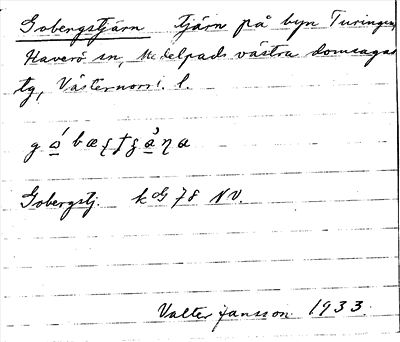 Gobergstjärn tjärn på byn Turingen,
Haverö sn, Medelpads västra domsagas
tg, Västernorrl. l.
Gobergstj. kG 78 NV.
Valter Jansson 1933.